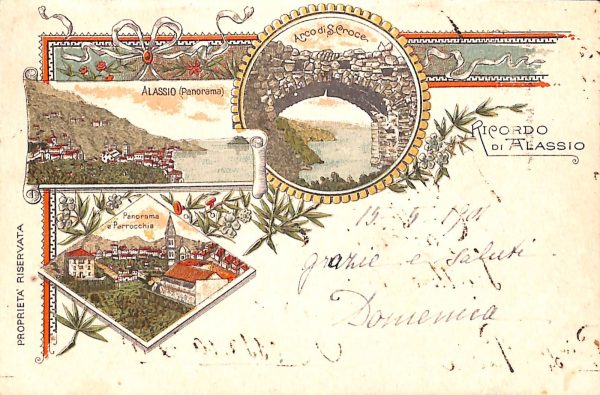 Arco di S. Croce.
ALASSIO (Panorama)
RICORDO
DI ALASSIO
Panorama
e Parrocchia
PROPRIETA' RISERVATA
grazie e saluti
Domenica